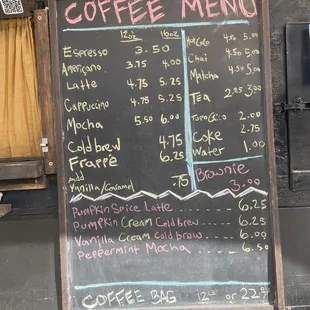 COFFEE MENU
12oz 16oz
Espresso 3.50
Americano 3.75 4.00
Latte 4.75 5.25
Cappuccino 4.75 5.25
Mocha 5.50 6.00
Cold brew 4.75
Frappè 6.25
Add
Vanilla/Caramel .75
Hot Coco 4.50 5.00
Chai 4.50 5.00
Matcha 4.50 5.00
Tea 2.25 3.00
Topo Chico 2.00
Coke 2.75
Water 1.00
Brownie
3.00
Pumpkin Spice Latte 6.25
Pumpkin Cream Cold brew 6.25
Vanilla Cream Cold brew 6.00
Peppermint Mocha 6.50
COFFEE BAG 12oz or 22